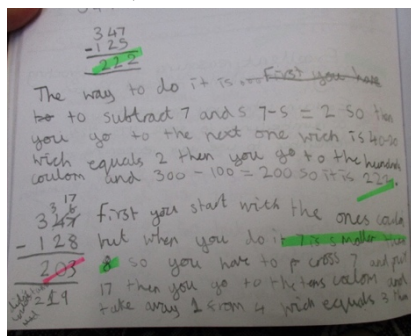 347
-125
222
The way to do it is... First you have
to to subtract 7 and 5 7-5 = 2 so then
you go to the next one wich is 40-20
wich equals 2 then you go to the hundreds
coulom and 300 - 100 = 200 so it is 222.
3 17
347
- 128
203
219
First you start with the ones coulom
but when you do it 7 is smaller than
8 so you have to cross 7 and put
17 then you go to the tens coulom and
take away 1 from 4 wich equals 3 then